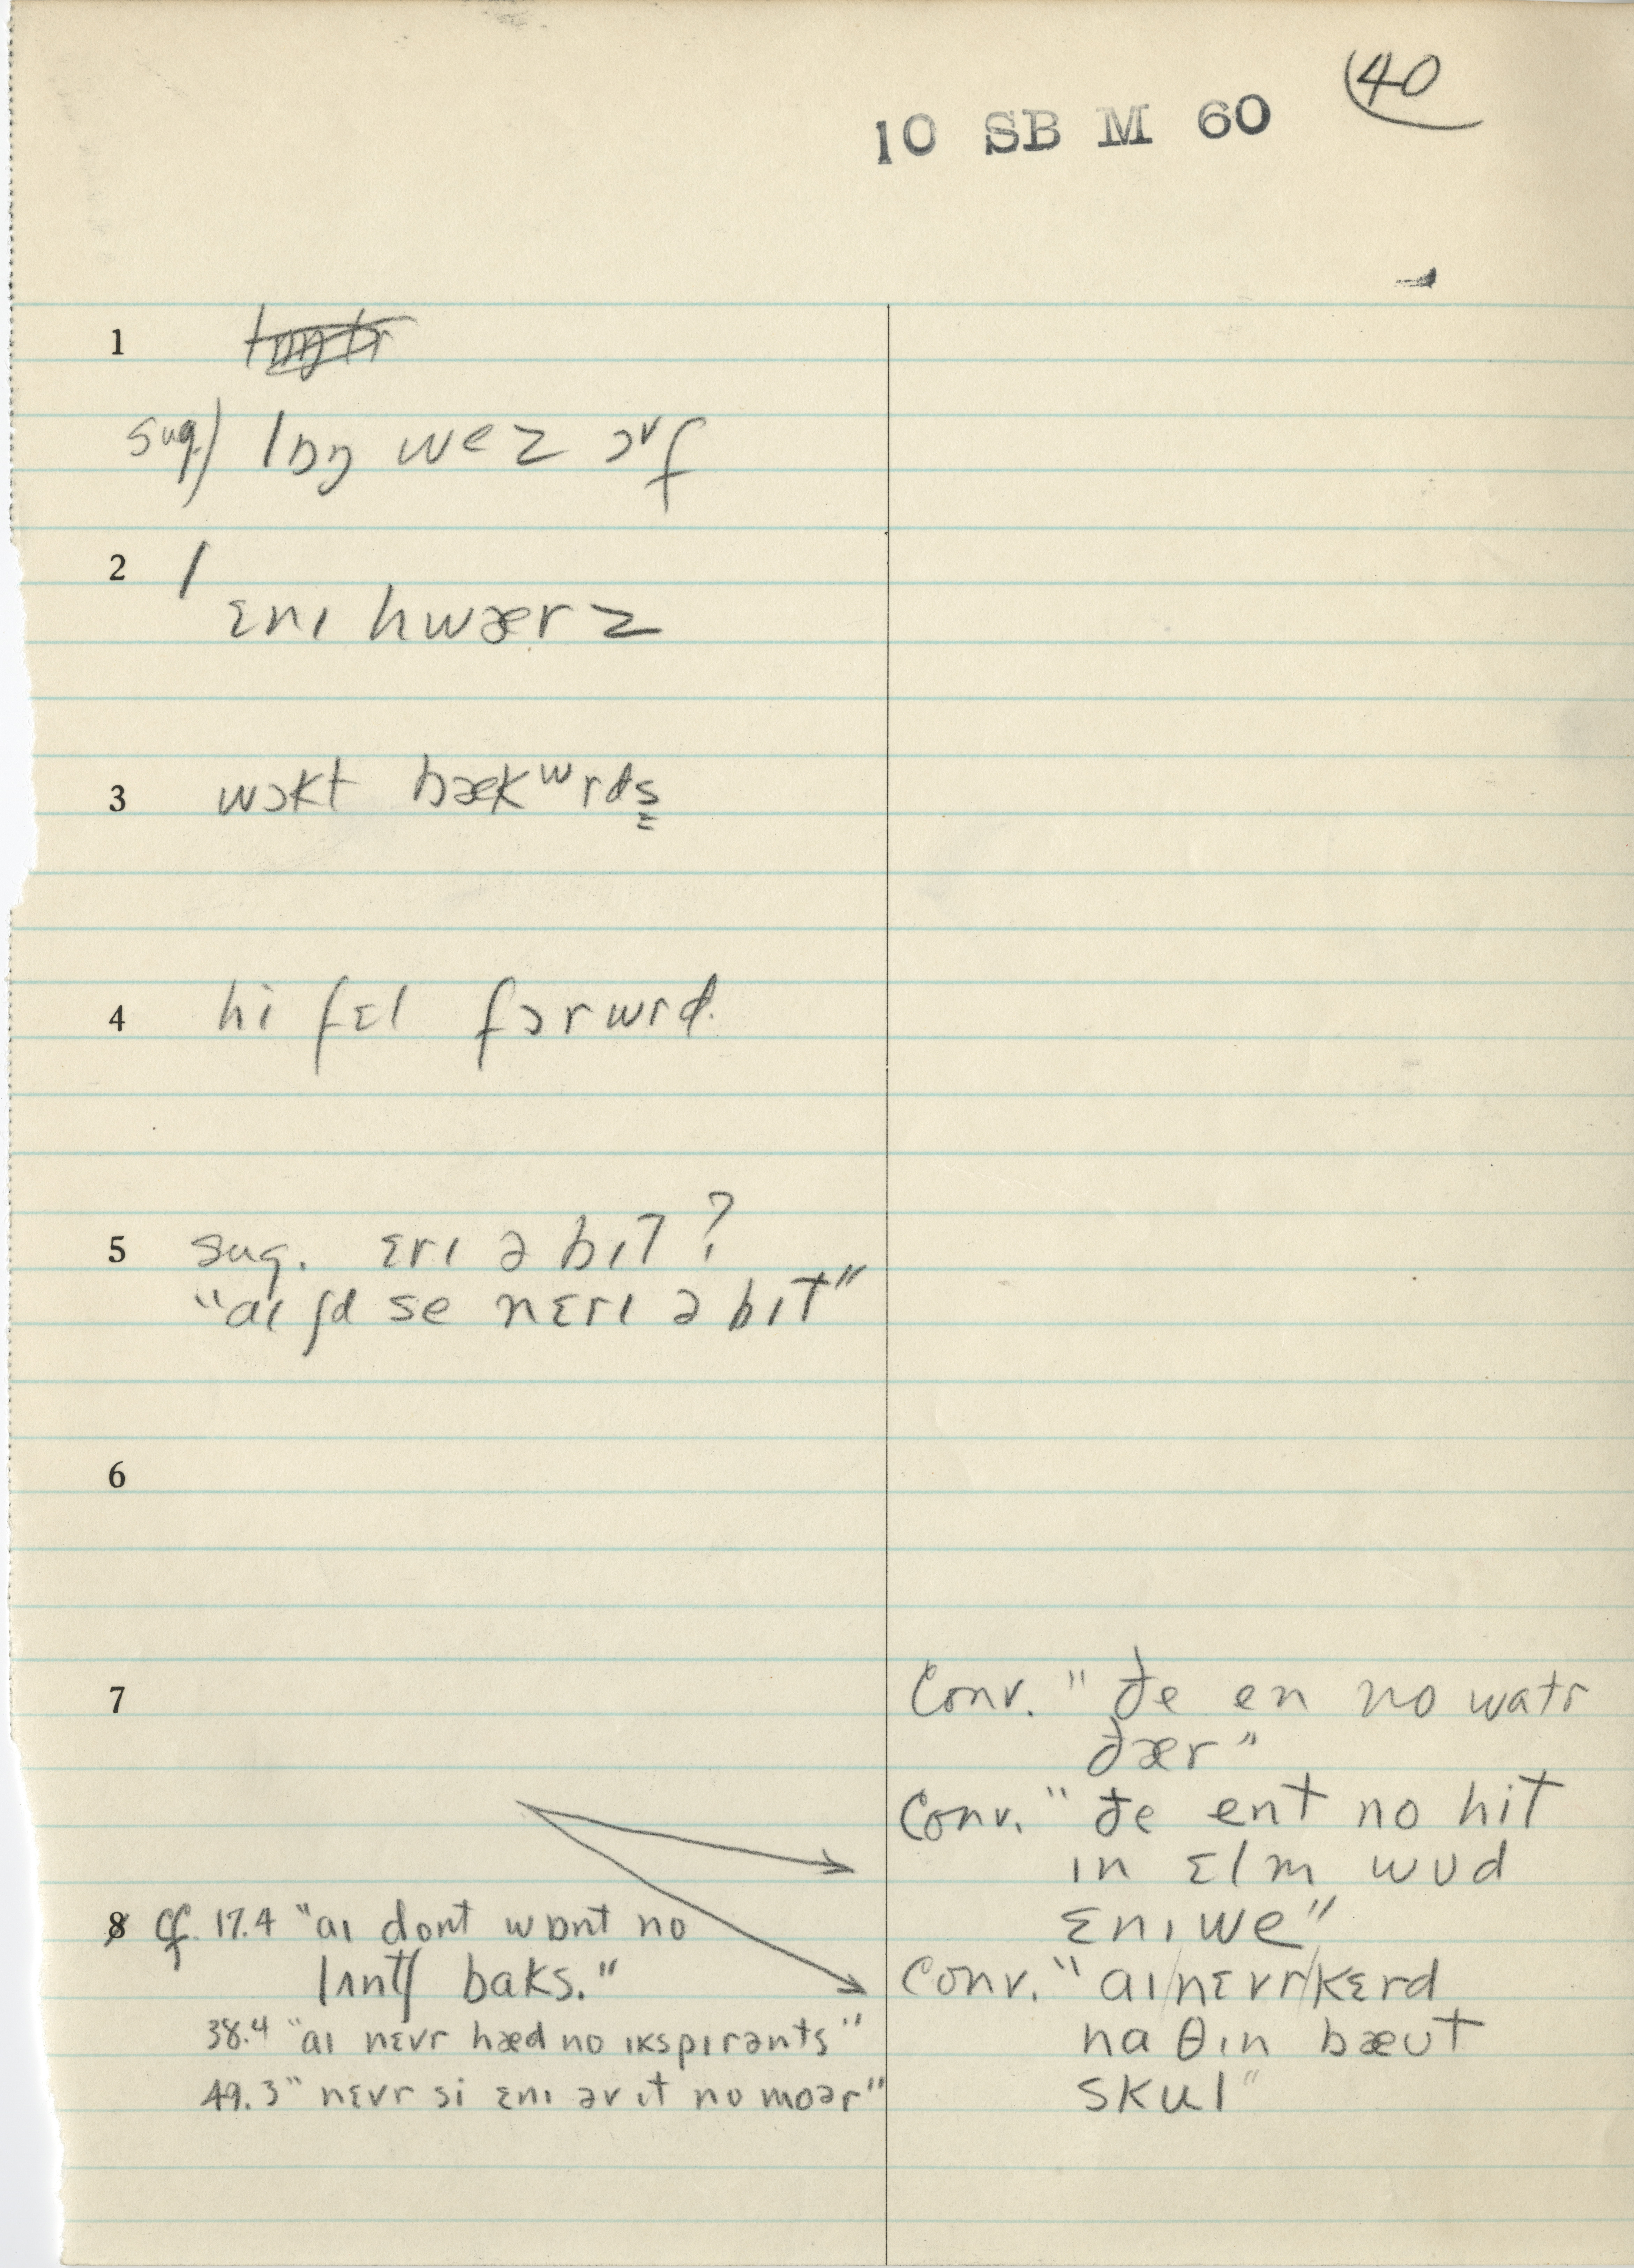 40
10 SB M 60
1
sug.) lɒŋ wez ɔᵛf
2 /
ɛnɪ hwærz
3 wɔkt bækʷrds
4 hi fɛl fɔrwrd.
5 sug. ɛrɪ ə bɪt?
"aɪ ʃd se nɛrɪ ə bɪt"
6
7
Conv. "ðe en no watr
ðær"
Conv. "ðe ent no hit
ɪn ɛlm wʊd
ɛnɪwe"
8 cf. 17.4 "aɪ dont wɒnt no
lʌntʃ baks."
38.4 "aɪ nɛvr hæd no ɪkspɪrənts"
49.3 "nɛvr si ɛnɪ əv ɪt no moər"
Conv. "aɪ/nɛvr/kɛrd
naθɪn bæʊt
skul"